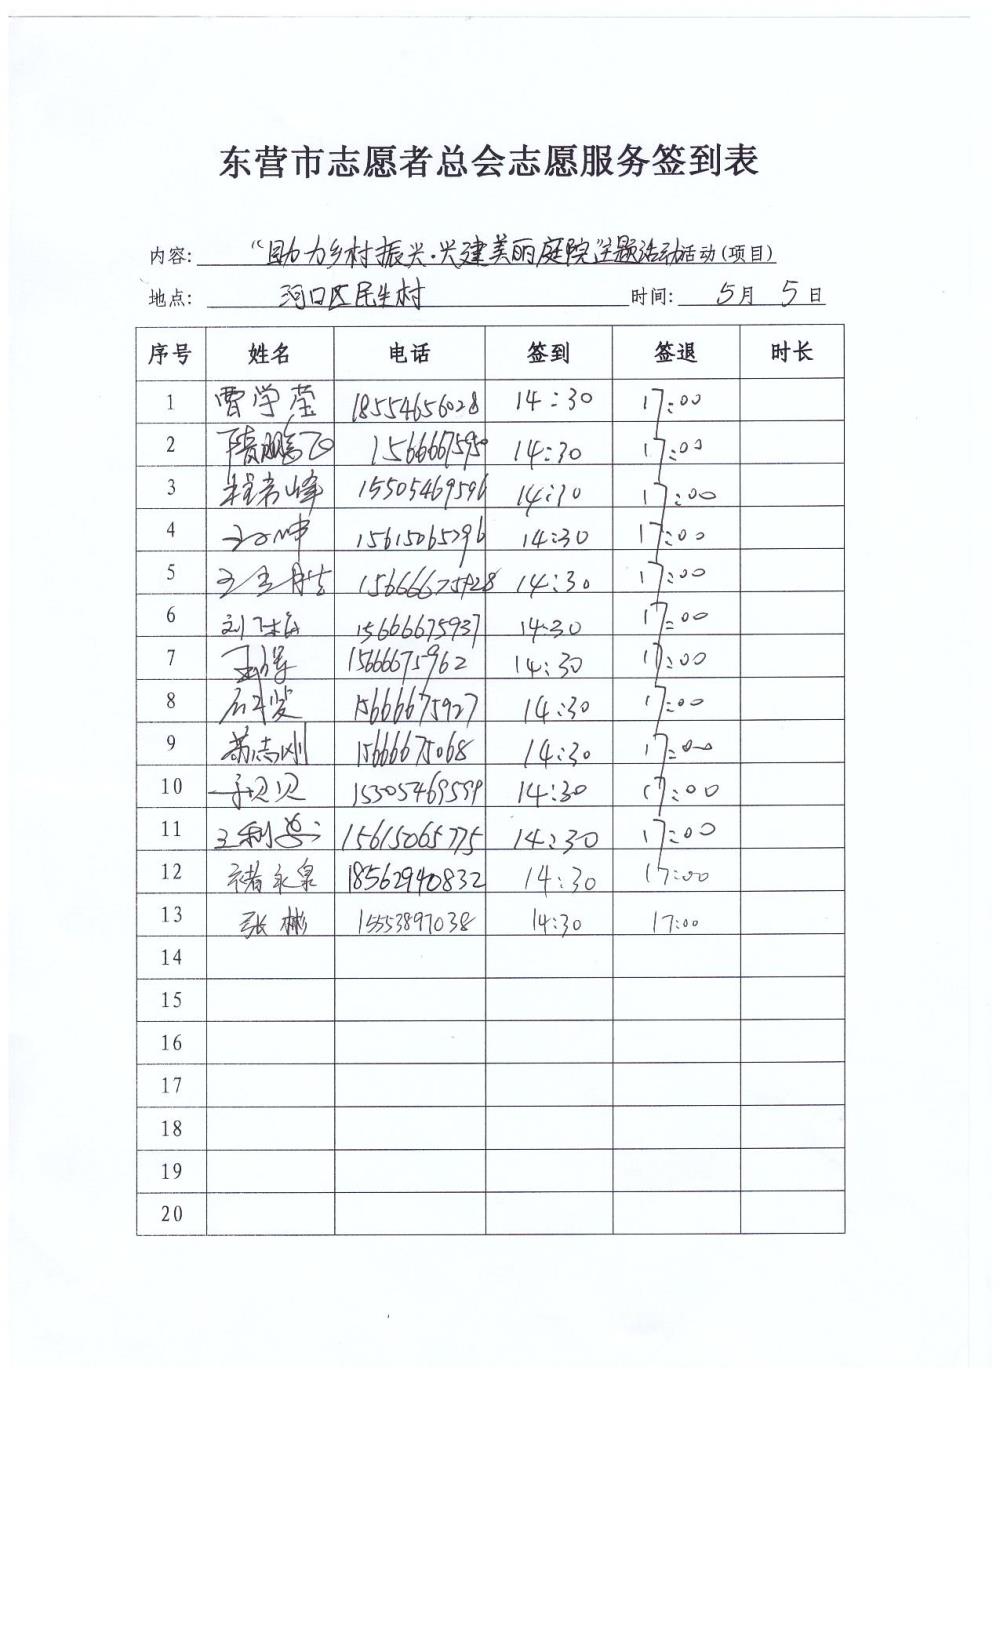 东营市志愿者总会志愿服务签到表
内容: “助力乡村振兴·兴建美丽庭院”主题活动活动(项目)
地点: 河口区民生村 时间: 5月 5日
序号 姓名 电话 签到 签退 时长
1 曹学莹 18554656028 14:30 17:00
2 隋鹏飞 1566667595 14:30 17:00
3 15505469596 14:30 17:00
4 14:30 17:00
5 15666675928 14:30 17:00
6 刘 15666675937 14:30 17:00
7 15666675962 14:30 17:00
8 15666675927 14:30 17:00
9 志刚 15666675068 14:30 17:00
10 于贝贝 14:30 17:00
11 王利 15615065775 14:30 17:00
12 褚永泉 18562940832 14:30 17:00
13 张彬 15553897038 14:30 17:00
14
15
16
17
18
19
20